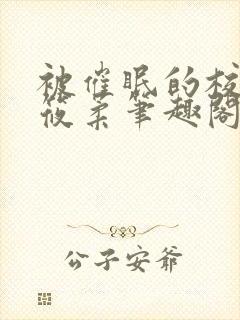 被催眠的校
筱柔笔趣阁
公子安爷